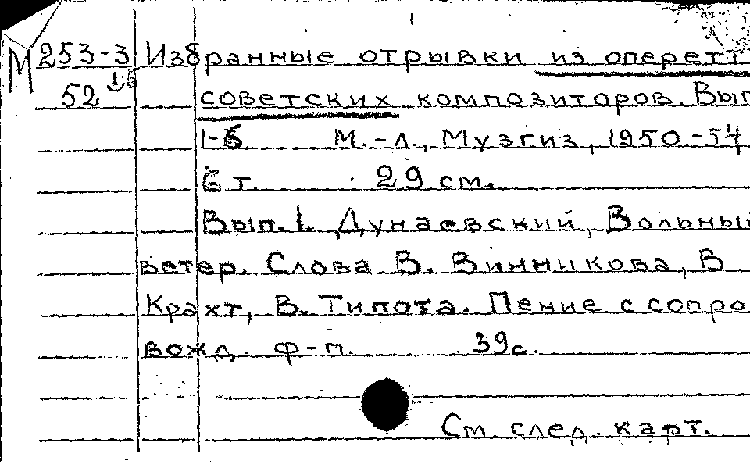 М 253-3 Избранные отрывки из оперетт
52 1-6 советских композиторов. Вып
1-6 М.-Л., Музгиз, 1950-54
6 т. 29 см.
Вып. 1. Дунаевский, Вольный
ветер. Слова В. Винникова, В
Крахт, В. Типота. Пение с сопро
вожд. ф-п. 39с.
См. след. карт.